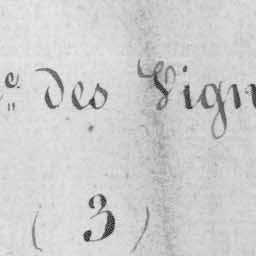 des Vign
( 3 )